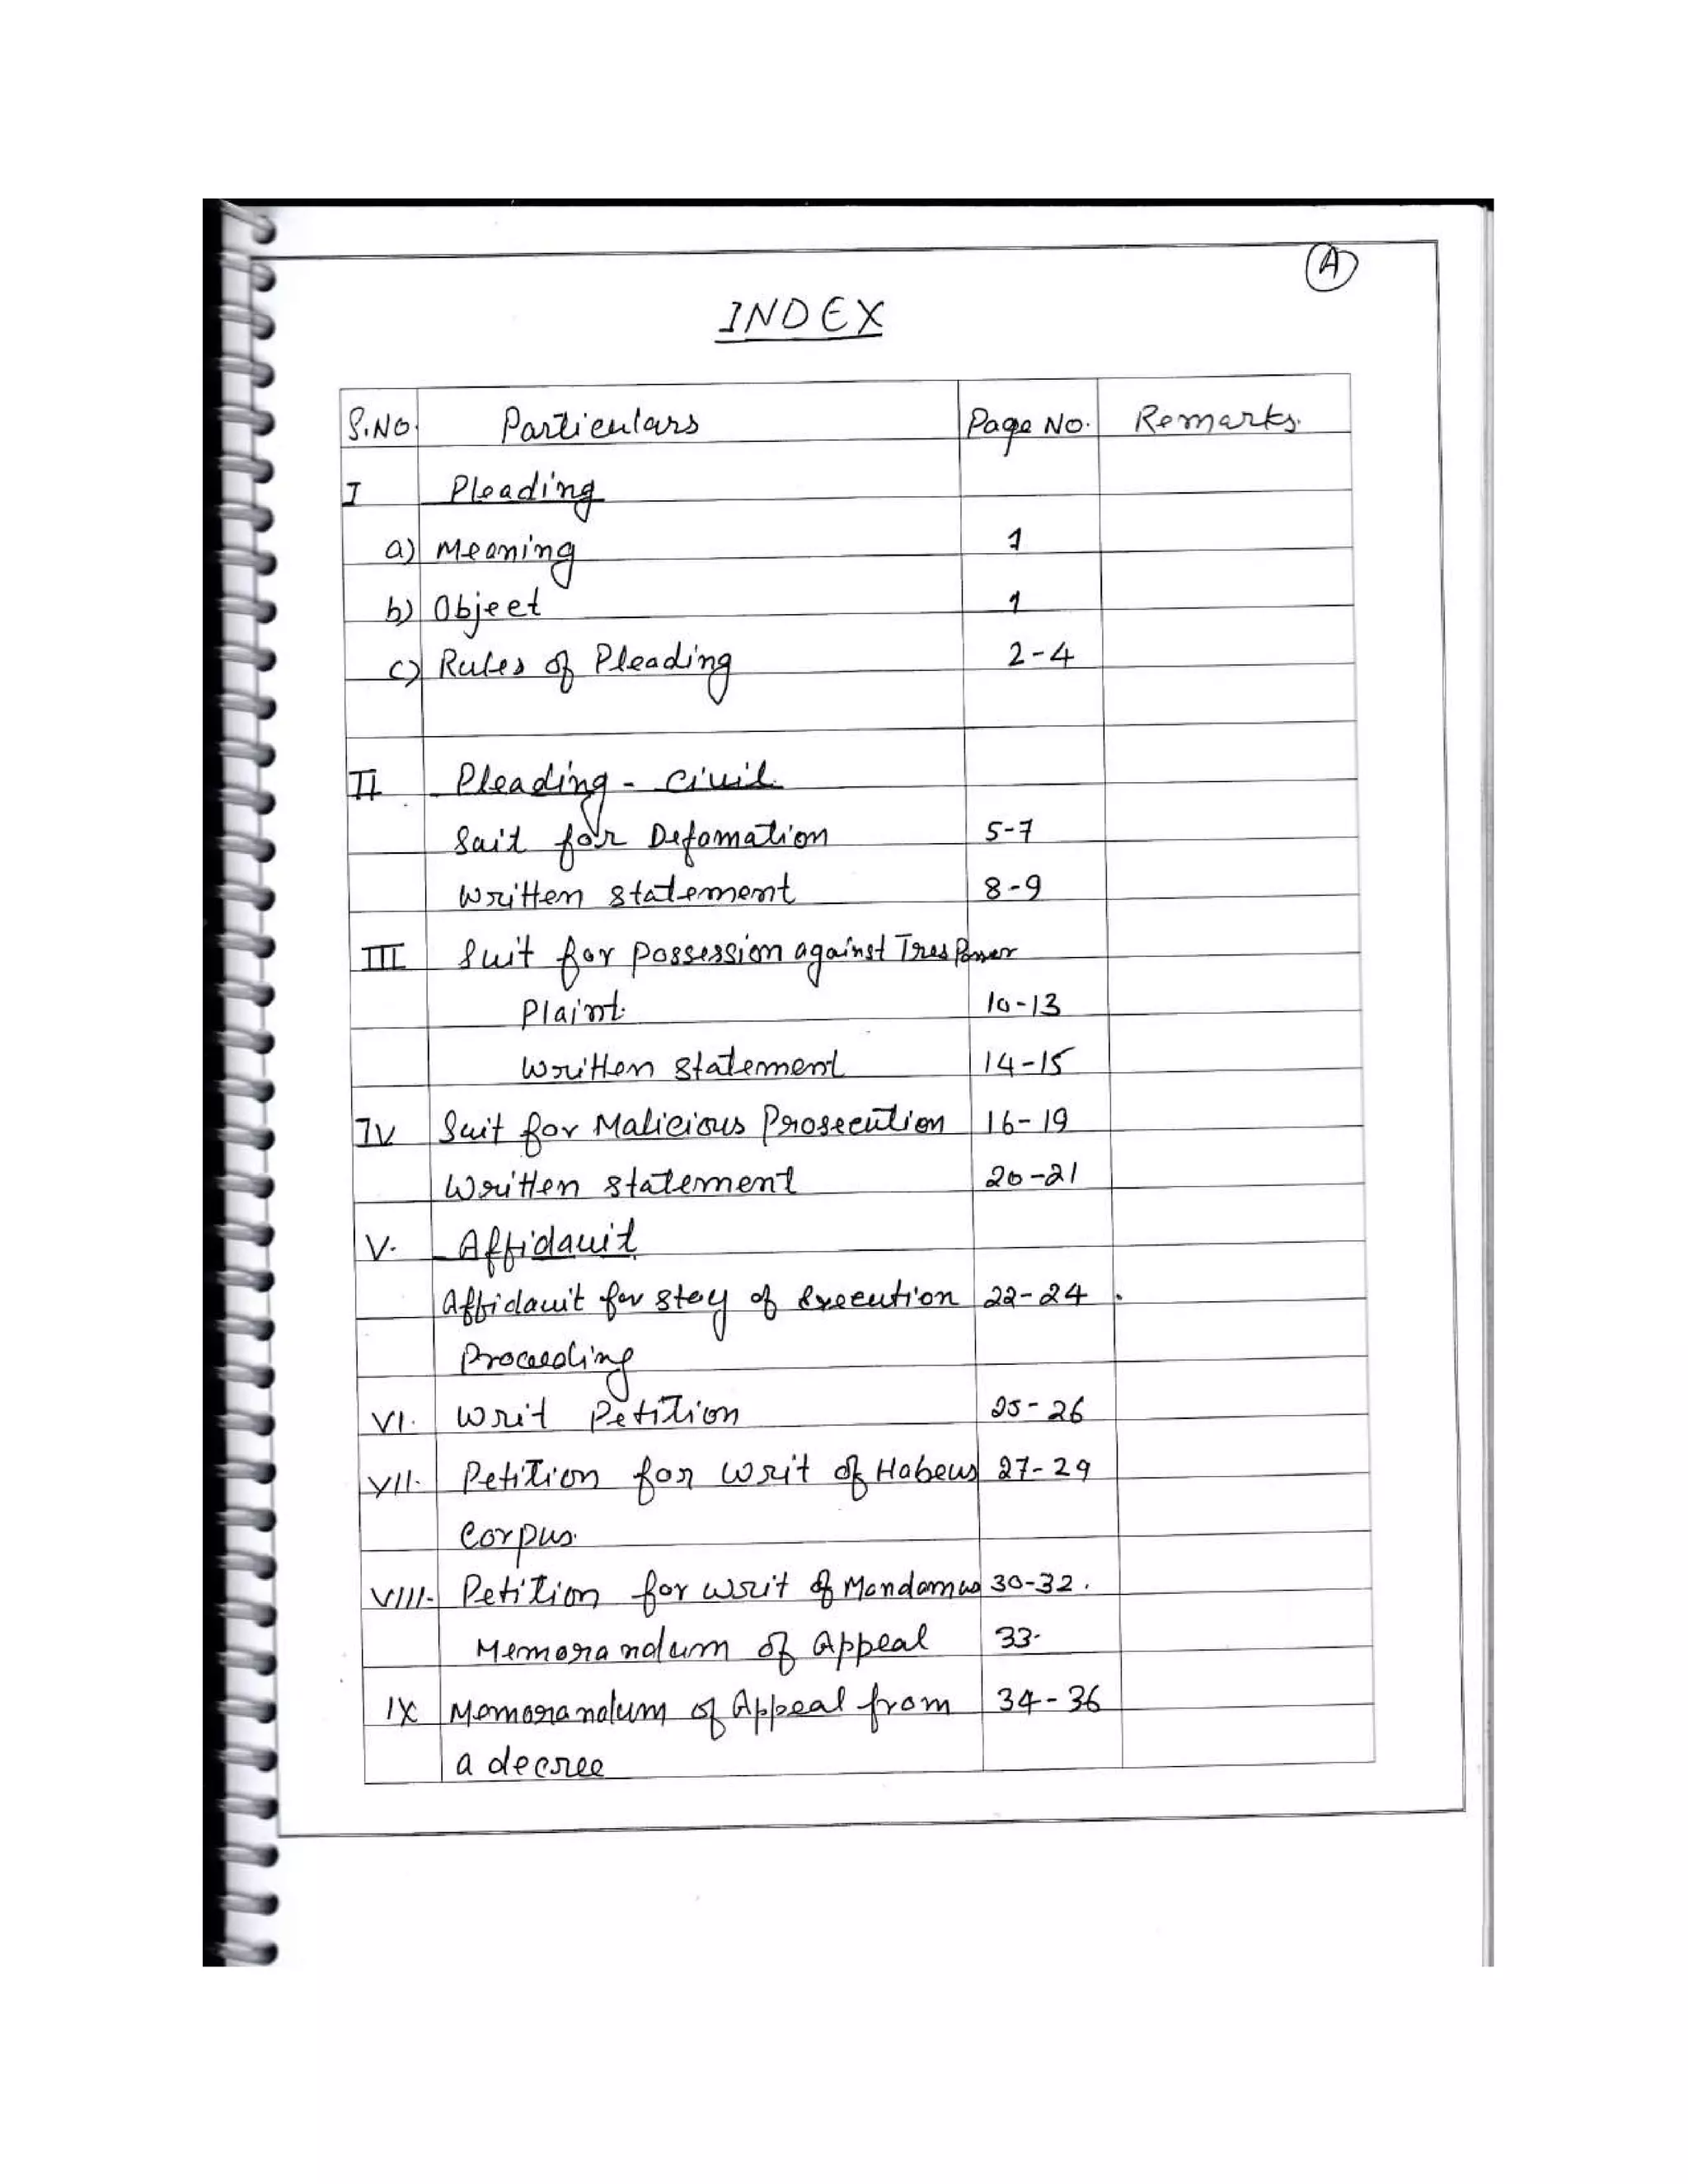 A
INDEX
S.No. Particulars Page No. Remarks.
I Pleading
a) Meaning 1
b) Object 1
c) Rules of Pleading 2-4
II Pleading - Civil
Suit for Defamation 5-7
Written statement 8-9
III Suit for Possession against Trespasser
Plaint. 10-13
Written statement 14-15
IV Suit for Malicious Prosecution 16-19
Written statement 20-21
V. Affidavit
Affidavit for stay of Execution 22-24
Proceeding
VI. Writ Petition 25-26
VII. Petition for writ of Habeus 27-29
Corpus.
VIII. Petition for writ of Mandamus 30-32.
Memorandum of Appeal 33.
IX Memorandum of Appeal from 34-36
a decree